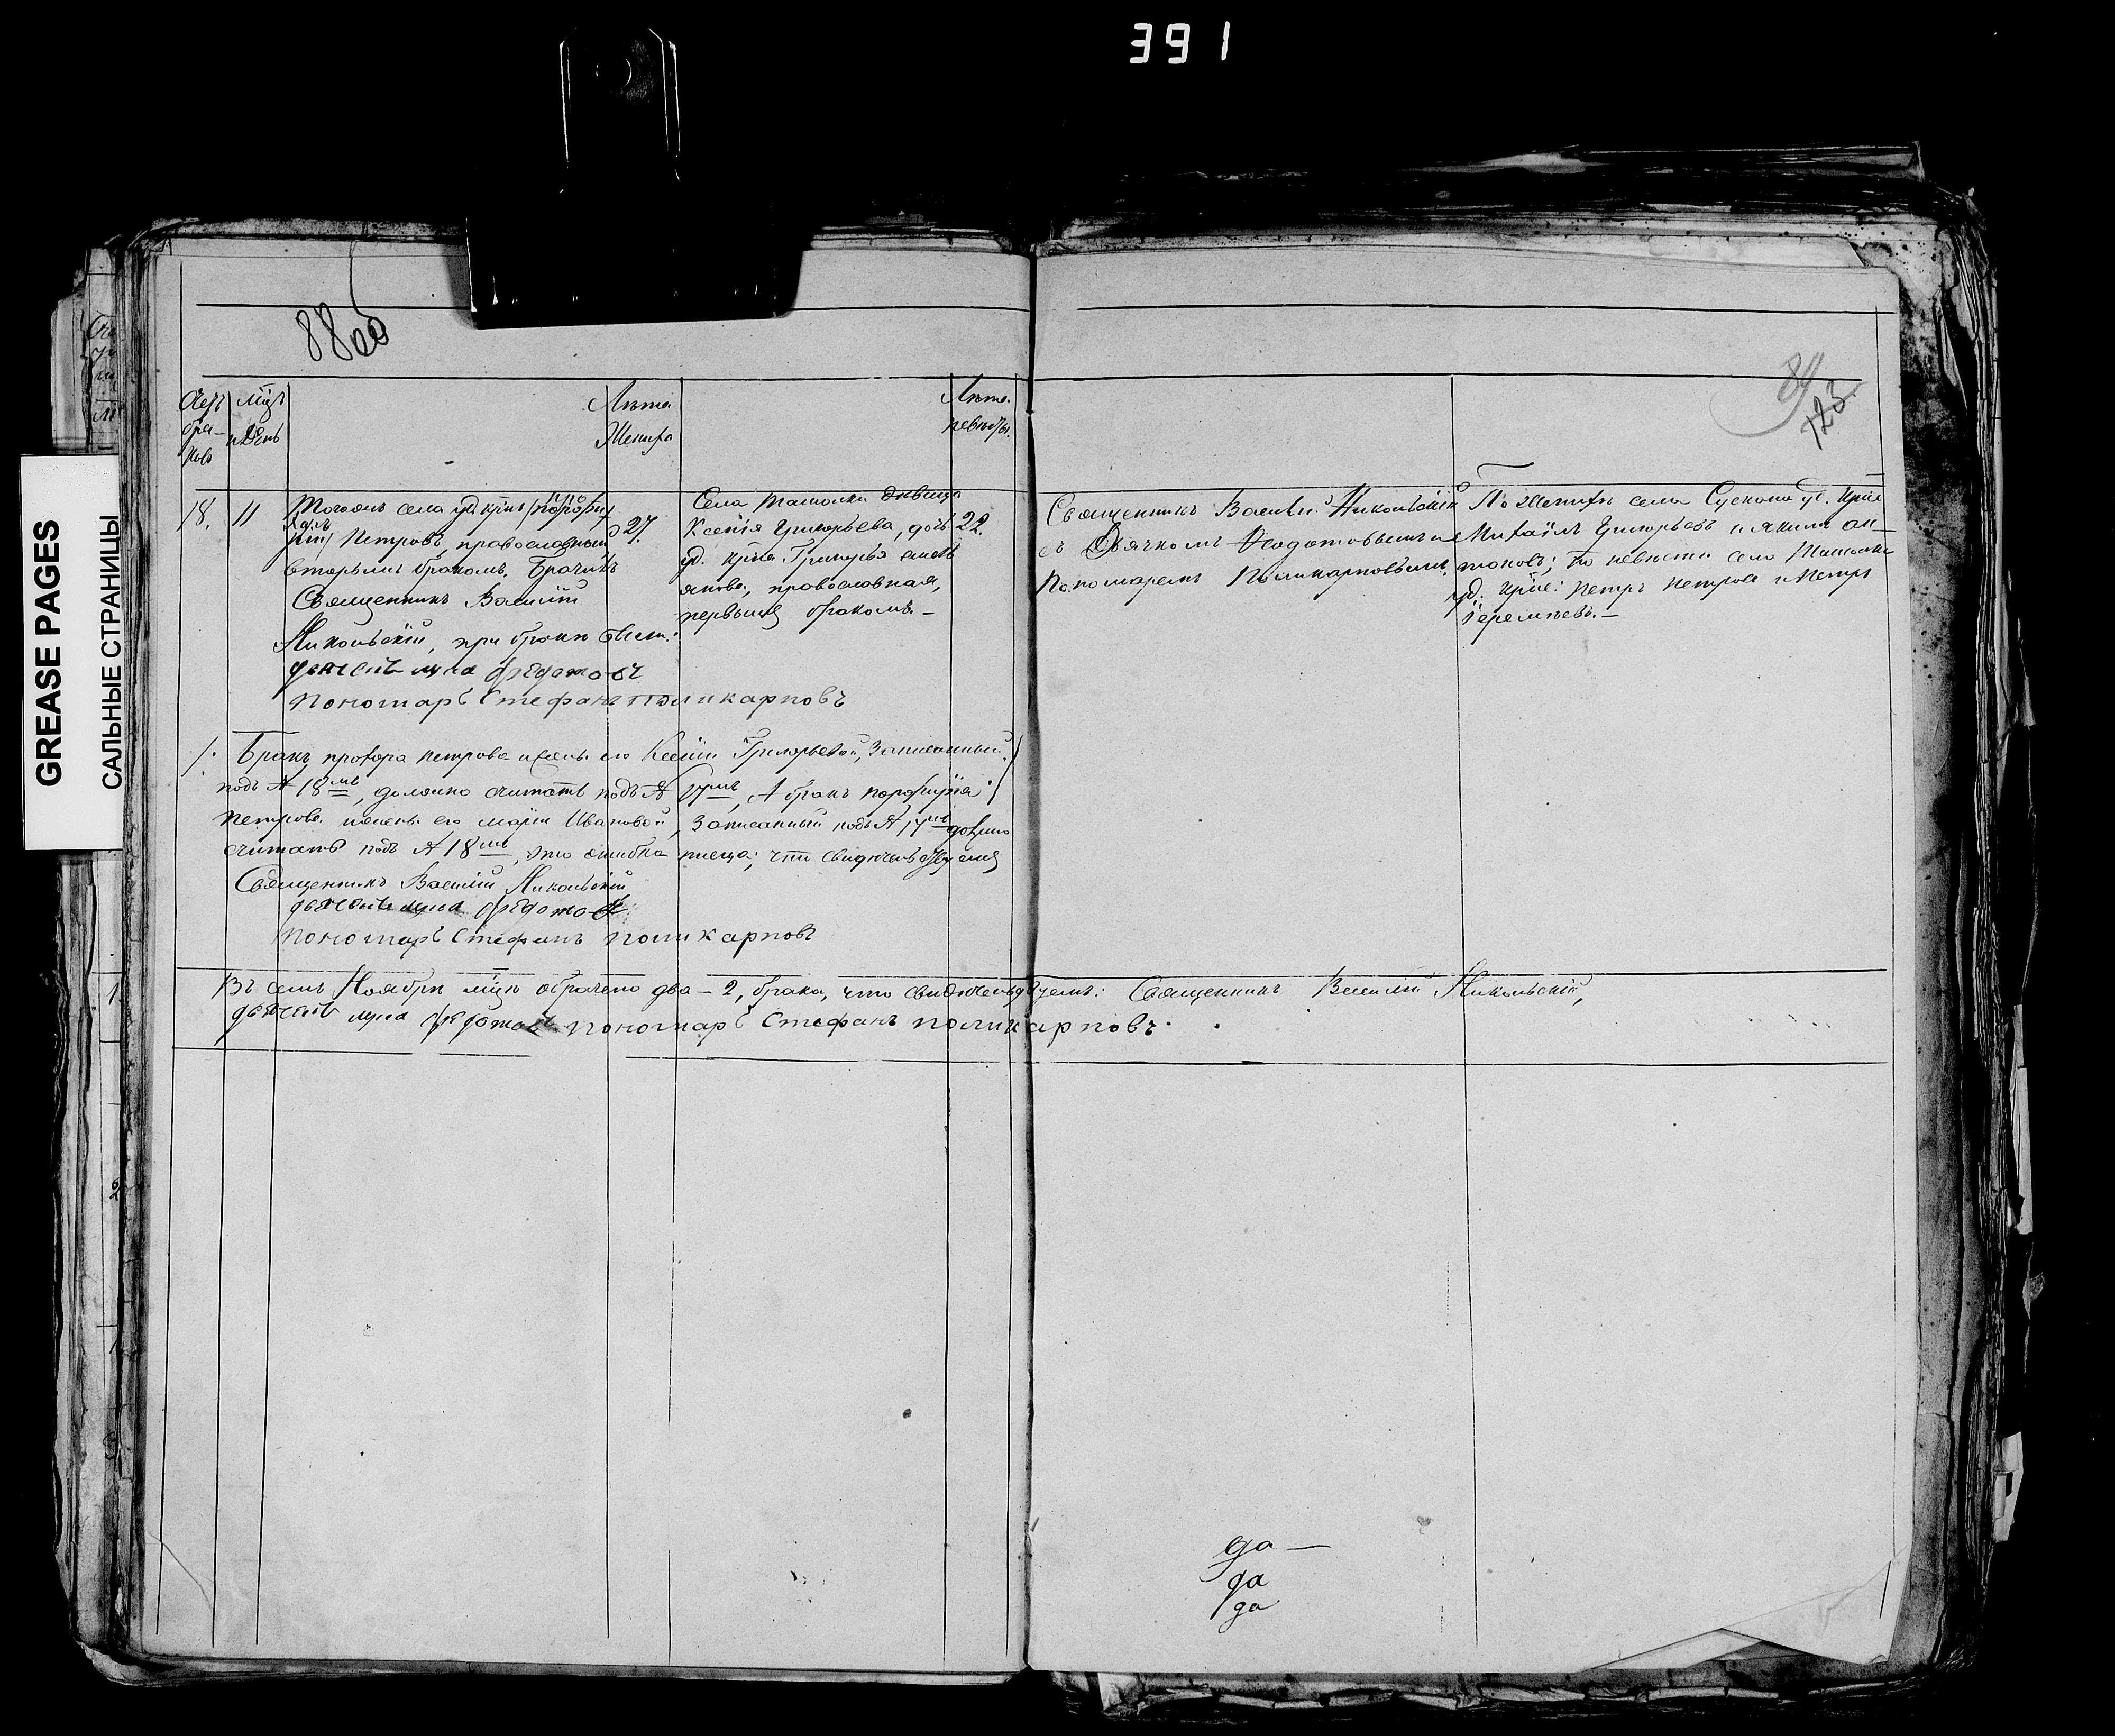 391
GREASE PAGES
САЛЬНЫЕ СТРАНИЦЫ
88об
89
123.
Счетъ бра-ковъ
мцъ и День
Лѣта Жениха
Лѣта невѣсты.
18.
11
Тогожъ села уд. крѣн.
Петровъ православный
вторымъ бракомъ. Брачилъ
Священникъ Василій
Никольскій, при бракѣ были:
дьячекъ Федотовъ
пономарь Стефанъ поликарповъ
27.
Села Ташолки дѣвица
Ксенія Григорьева, дочь
уд. крѣна Григорья
православная,
первымъ бракомъ. —
22.
Священникъ Василій Никольскій
съ Дьячкомъ Федотовымъ и
Пономаремъ Поликарповымъ.
По женихѣ села Сускана уд. крѣне
Михаилъ Григорьевъ и Акимъ ан-
тоновъ; по невѣстѣ села Ташолки
уд. крѣне: Петръ Петровъ и Петръ
Еремѣевъ. —
Бракъ Петрова и жены его Ксеніи Григорьевой, записанный
подъ № 18мъ, должно считать подъ № 17мъ, А бракъ порфирія
Петрова и жены его маріи Ивановой, записанный подъ № 17мъ должно
считать подъ № 18мъ, это ошибка писца; что свидѣтельствуемъ
Священникъ Василій Никольскій
дьячекъ Федотовъ
пономарь Стефанъ поликарповъ
Въ семъ Ноябрѣ мцѣ обрачено два — 2, брака, что свидѣтельствуемъ: Священникъ Василій Никольскій,
дьячекъ Федотовъ пономарь Стефанъ поликарповъ.
да —
да
да